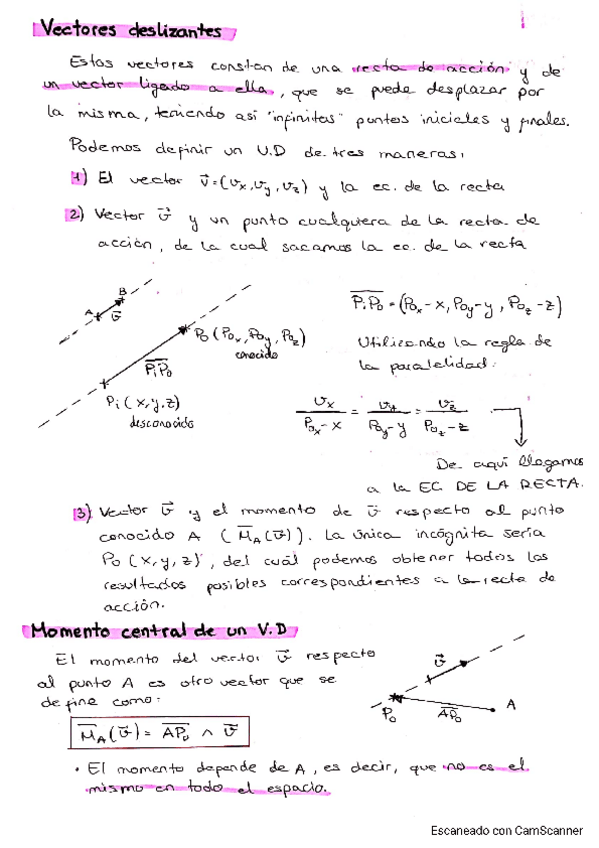 Vectores deslizantes
Estos vectores constan de una recta de acción y de
un vector ligado a ella, que se puede desplazar por
la misma, teniendo así "infinitos" puntos iniciales y finales.
Podemos definir un V.D de tres maneras:
1) El vector v⃗=(vx,vy,vz) y la ec. de la recta
2) Vector v⃗ y un punto cualquiera de la recta de
acción, de la cual sacamos la ec. de la recta
A B v⃗
P0 (P0x, P0y, P0z)
conocido
PiP0
Pi (x,y,z)
desconocido
PiP0 = (P0x - x, P0y - y, P0z - z)
Utilizando la regla de
la paralelidad:
vx / (P0x - x) = vy / (P0y - y) = vz / (P0z - z)
De aquí llegamos
a la EC. DE LA RECTA.
3) Vector v⃗ y el momento de v⃗ respecto al punto
conocido A (MA(v⃗)). La única incógnita sería
P0 (x,y,z), del cuál podemos obtener todos los
resultados posibles correspondientes a la recta de
acción.
Momento central de un V.D
El momento del vector v⃗ respecto
al punto A es otro vector que se
define como:
MA(v⃗) = AP0 ∧ v⃗
v⃗
P0 AP0 A
• El momento depende de A, es decir, que no es el
mismo en todo el espacio.
Escaneado con CamScanner